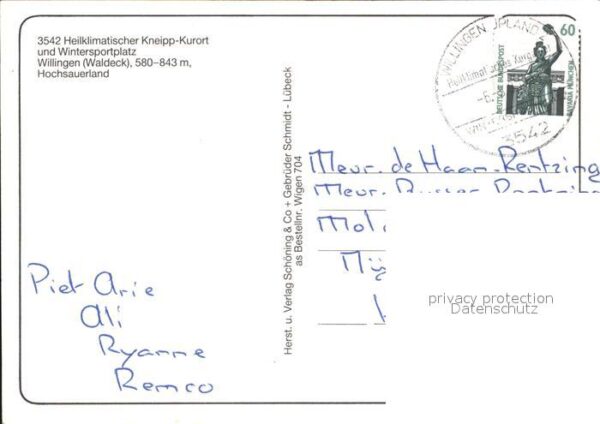 3542 Heilklimatischer Kneipp-Kurort
und Wintersportplatz
Willingen (Waldeck), 580–843 m,
Hochsauerland
WILLINGEN UPLAND
3542
60
DEUTSCHE BUNDESPOST
BAVARIA MÜNCHEN
Herst. u. Verlag Schöning & Co + Gebrüder Schmidt - Lübeck
as Bestellnr. Wigen 704
Mevr. de Haan-Rentzing
Mevr.
Piet Arie
Ali
Ryanne
Remco
privacy protection
Datenschutz